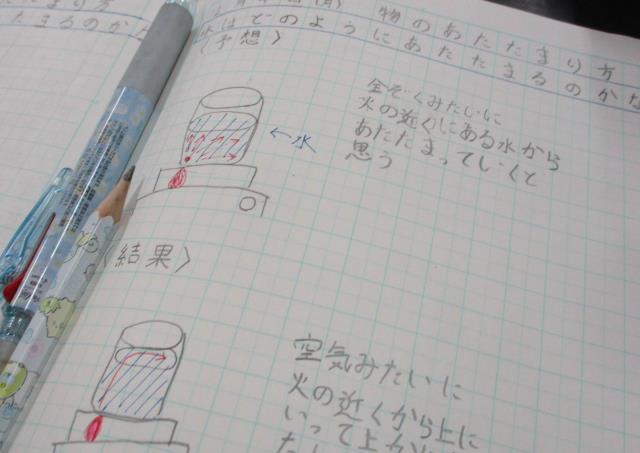 物のあたたまり方
水はどのようにあたたまるのかな
〈予想〉
金ぞくみたいに
火の近くにある水から
あたたまっていくと
思う
←水
〈結果〉
空気みたいに
火の近くから上に
いって上から